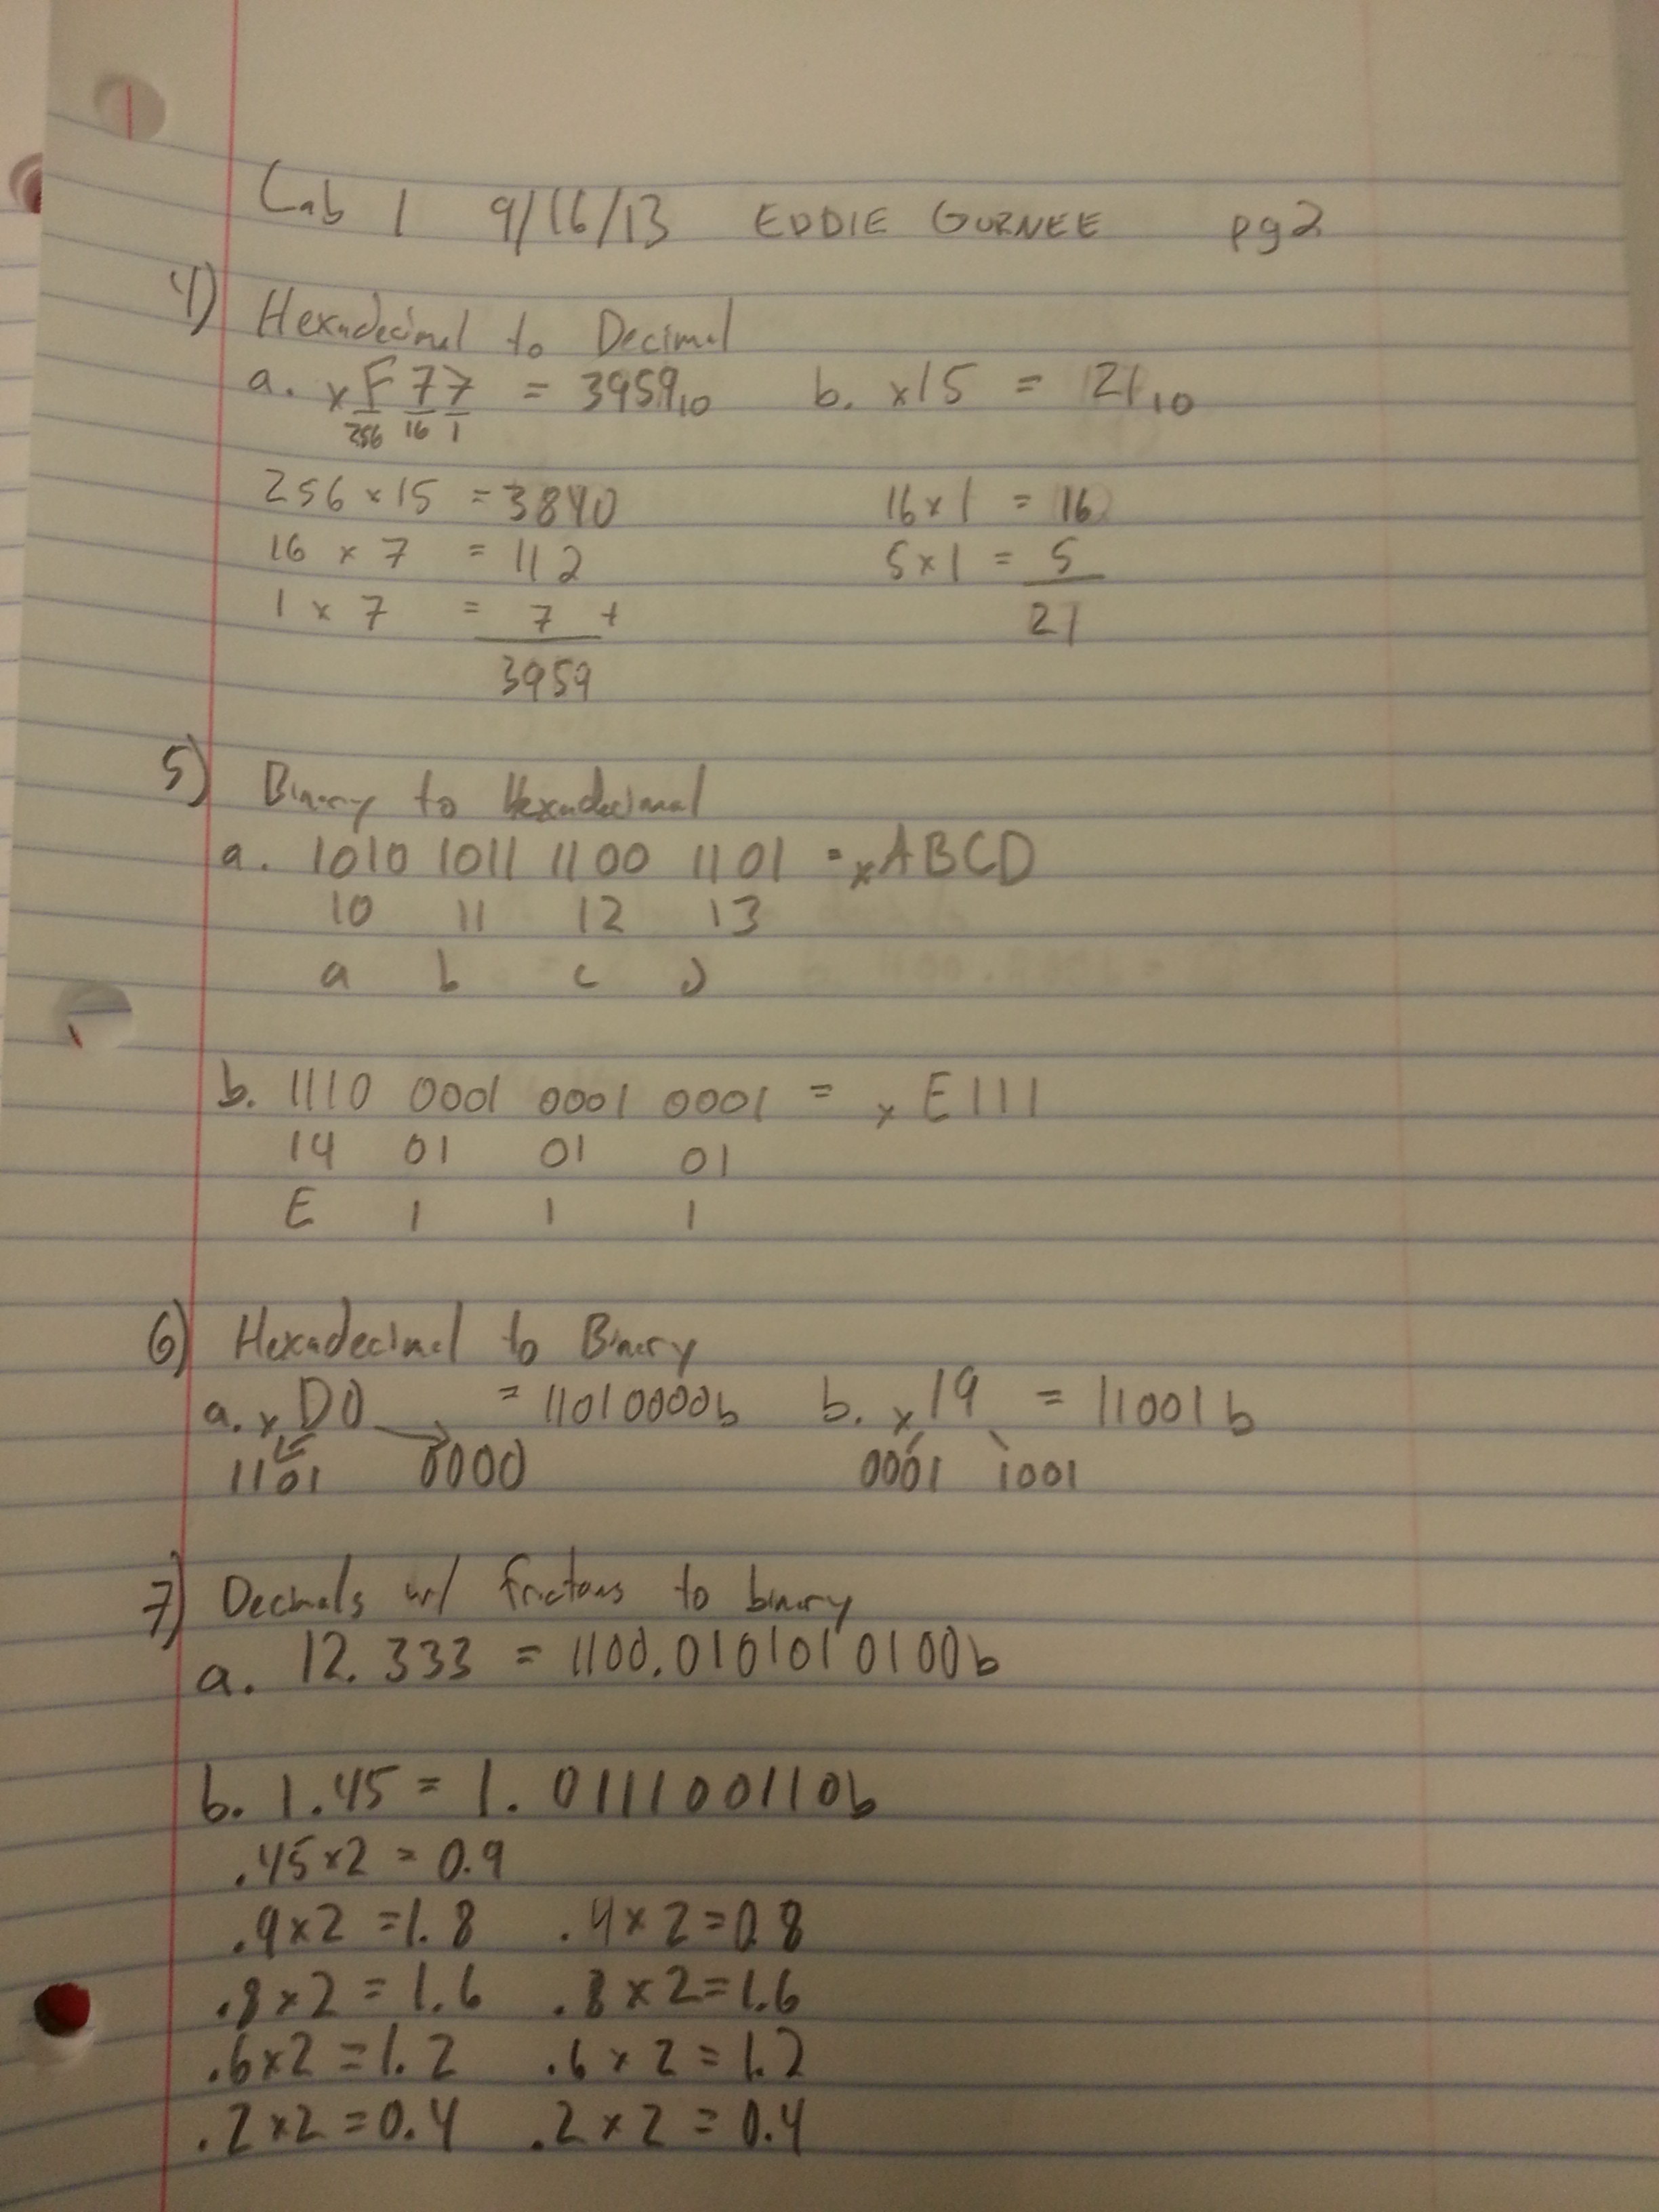 Lab 1 9/16/13 EDDIE GURNEE pg2
4) Hexadecimal to Decimal
a. xF77 = 3959₁₀ b. x15 = 21₁₀
256 16 1
256 x 15 = 3840 16 x 1 = 16
16 x 7 = 112 5 x 1 = 5
1 x 7 = 7 + 21
3959
5) Binary to Hexadecimal
a. 1010 1011 1100 1101 = xABCD
10 11 12 13
a b c d
b. 1110 0001 0001 0001 = xE111
14 01 01 01
E 1 1 1
6) Hexadecimal to Binary
a. xD0 = 11010000b b. x19 = 11001b
1101 0000 0001 1001
7) Decimals w/ frictons to binary
a. 12.333 = 1100.0101010100b
b. 1.45 = 1.0111100110b
.45x2 = 0.9
.9x2 = 1.8 .4x2 = 0.8
.8x2 = 1.6 .8x2 = 1.6
.6x2 = 1.2 .6x2 = 1.2
.2x2 = 0.4 .2x2 = 0.4